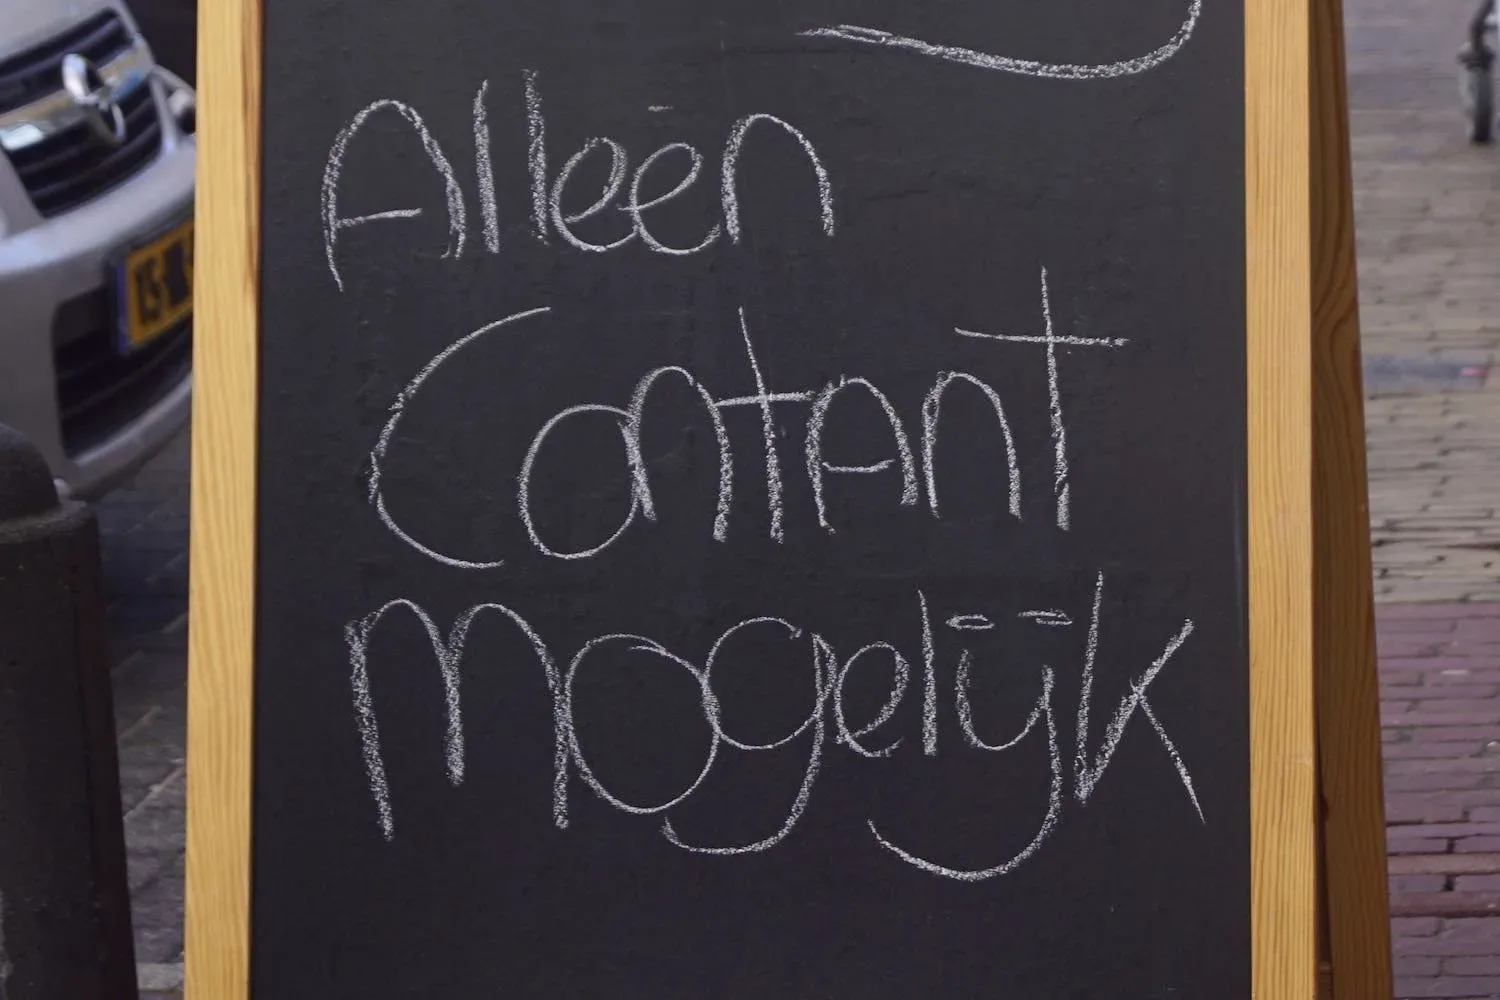 Alleen
Contant
mogelijk